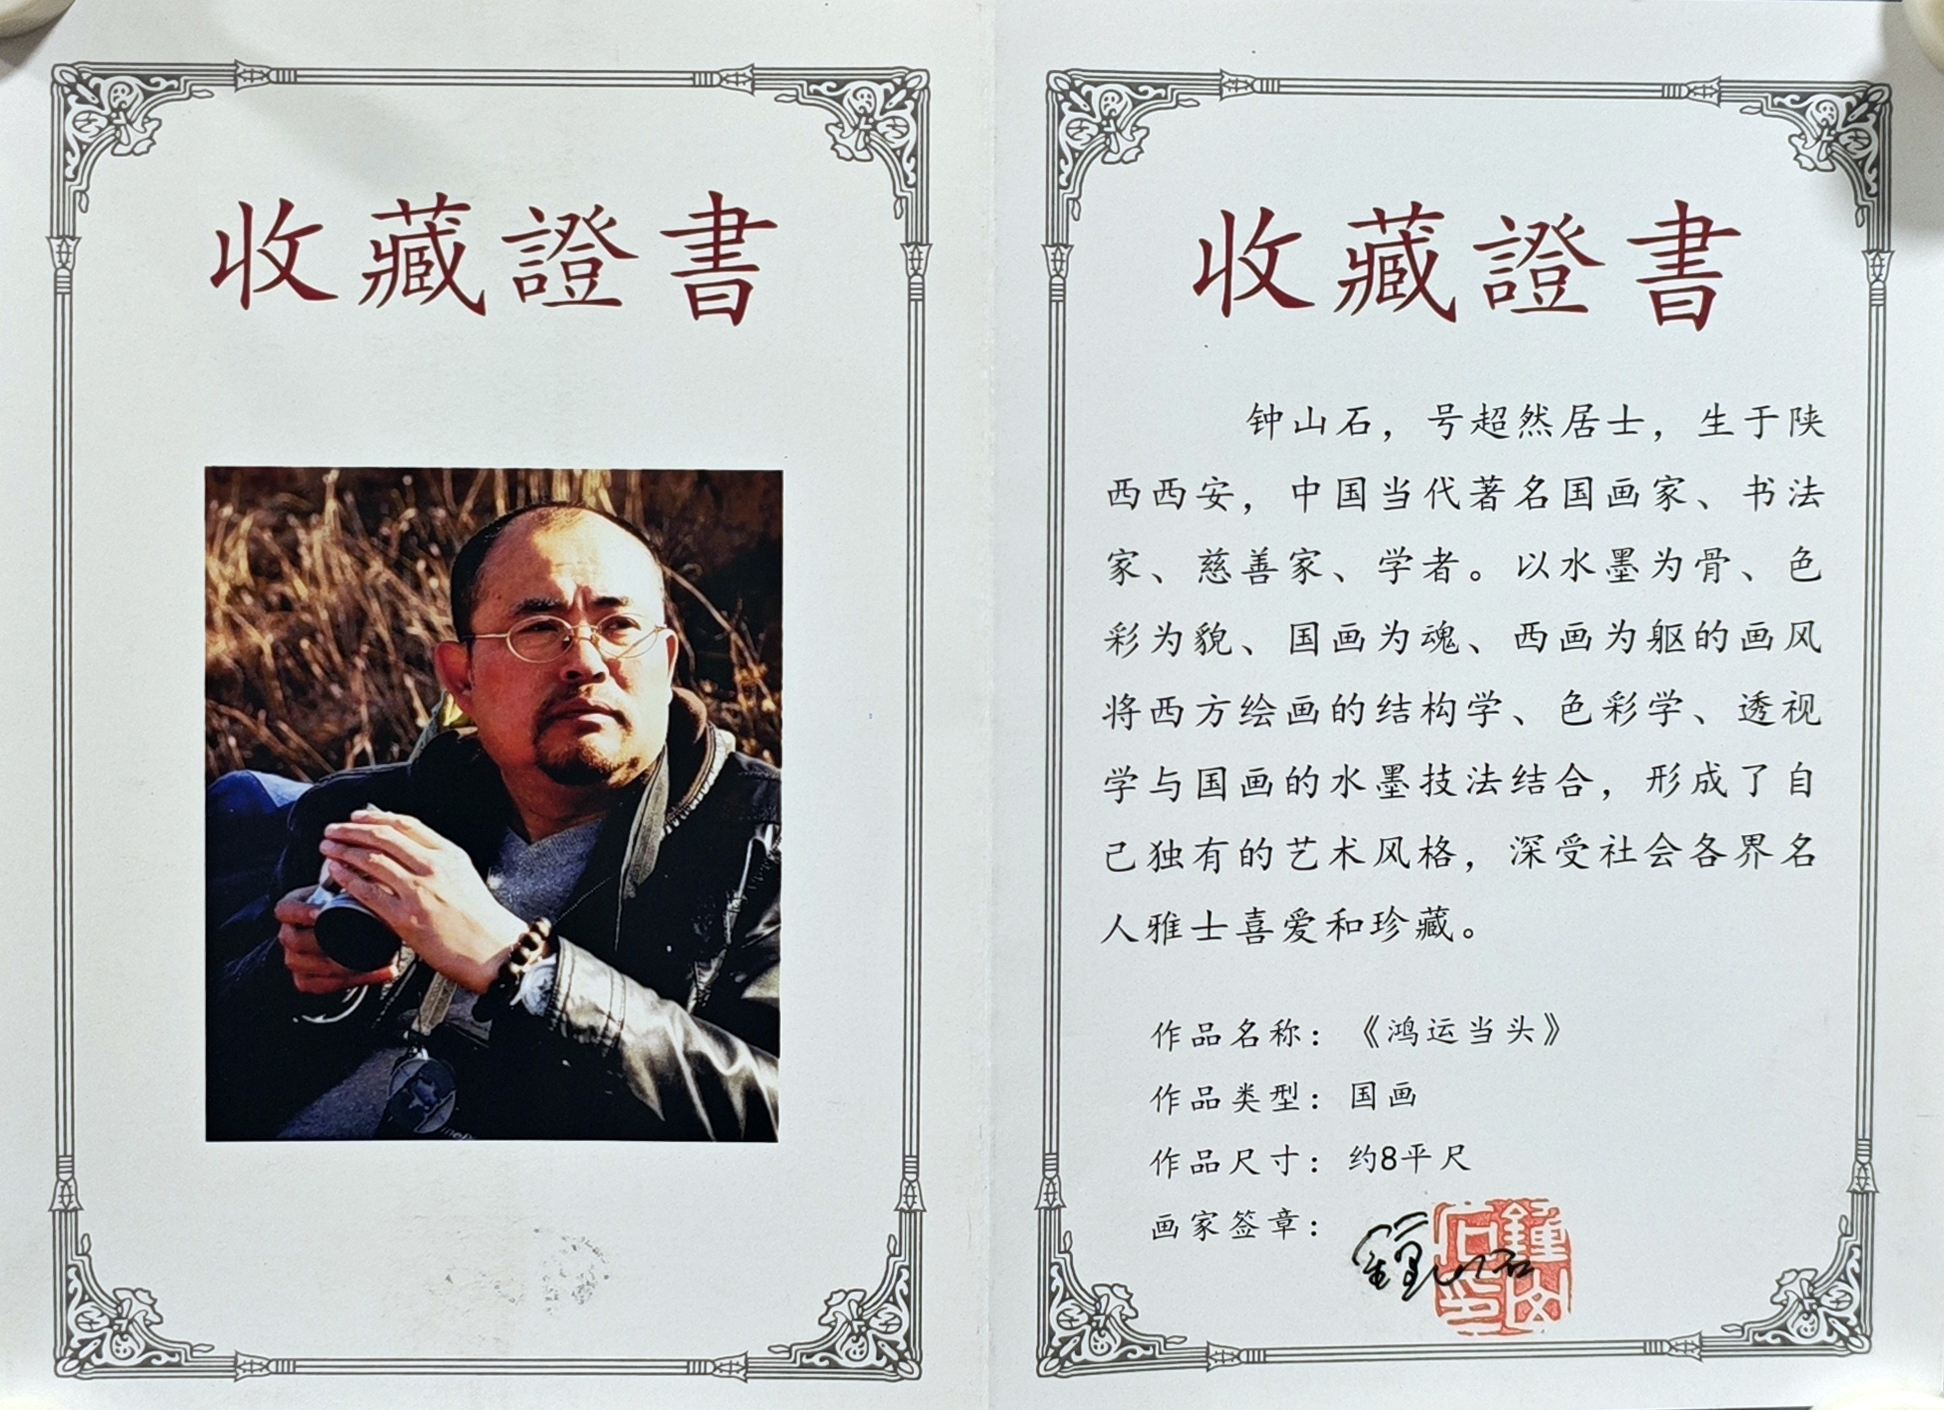 收藏證書
收藏證書
钟山石，号超然居士，生于陕
西西安，中国当代著名国画家、书法
家、慈善家、学者。以水墨为骨、色
彩为貌、国画为魂、西画为躯的画风
将西方绘画的结构学、色彩学、透视
学与国画的水墨技法结合，形成了自
己独有的艺术风格，深受社会各界名
人雅士喜爱和珍藏。
作品名称：《鸿运当头》
作品类型：国画
作品尺寸：约8平尺
画家签章：鍾山石
鍾山
石印